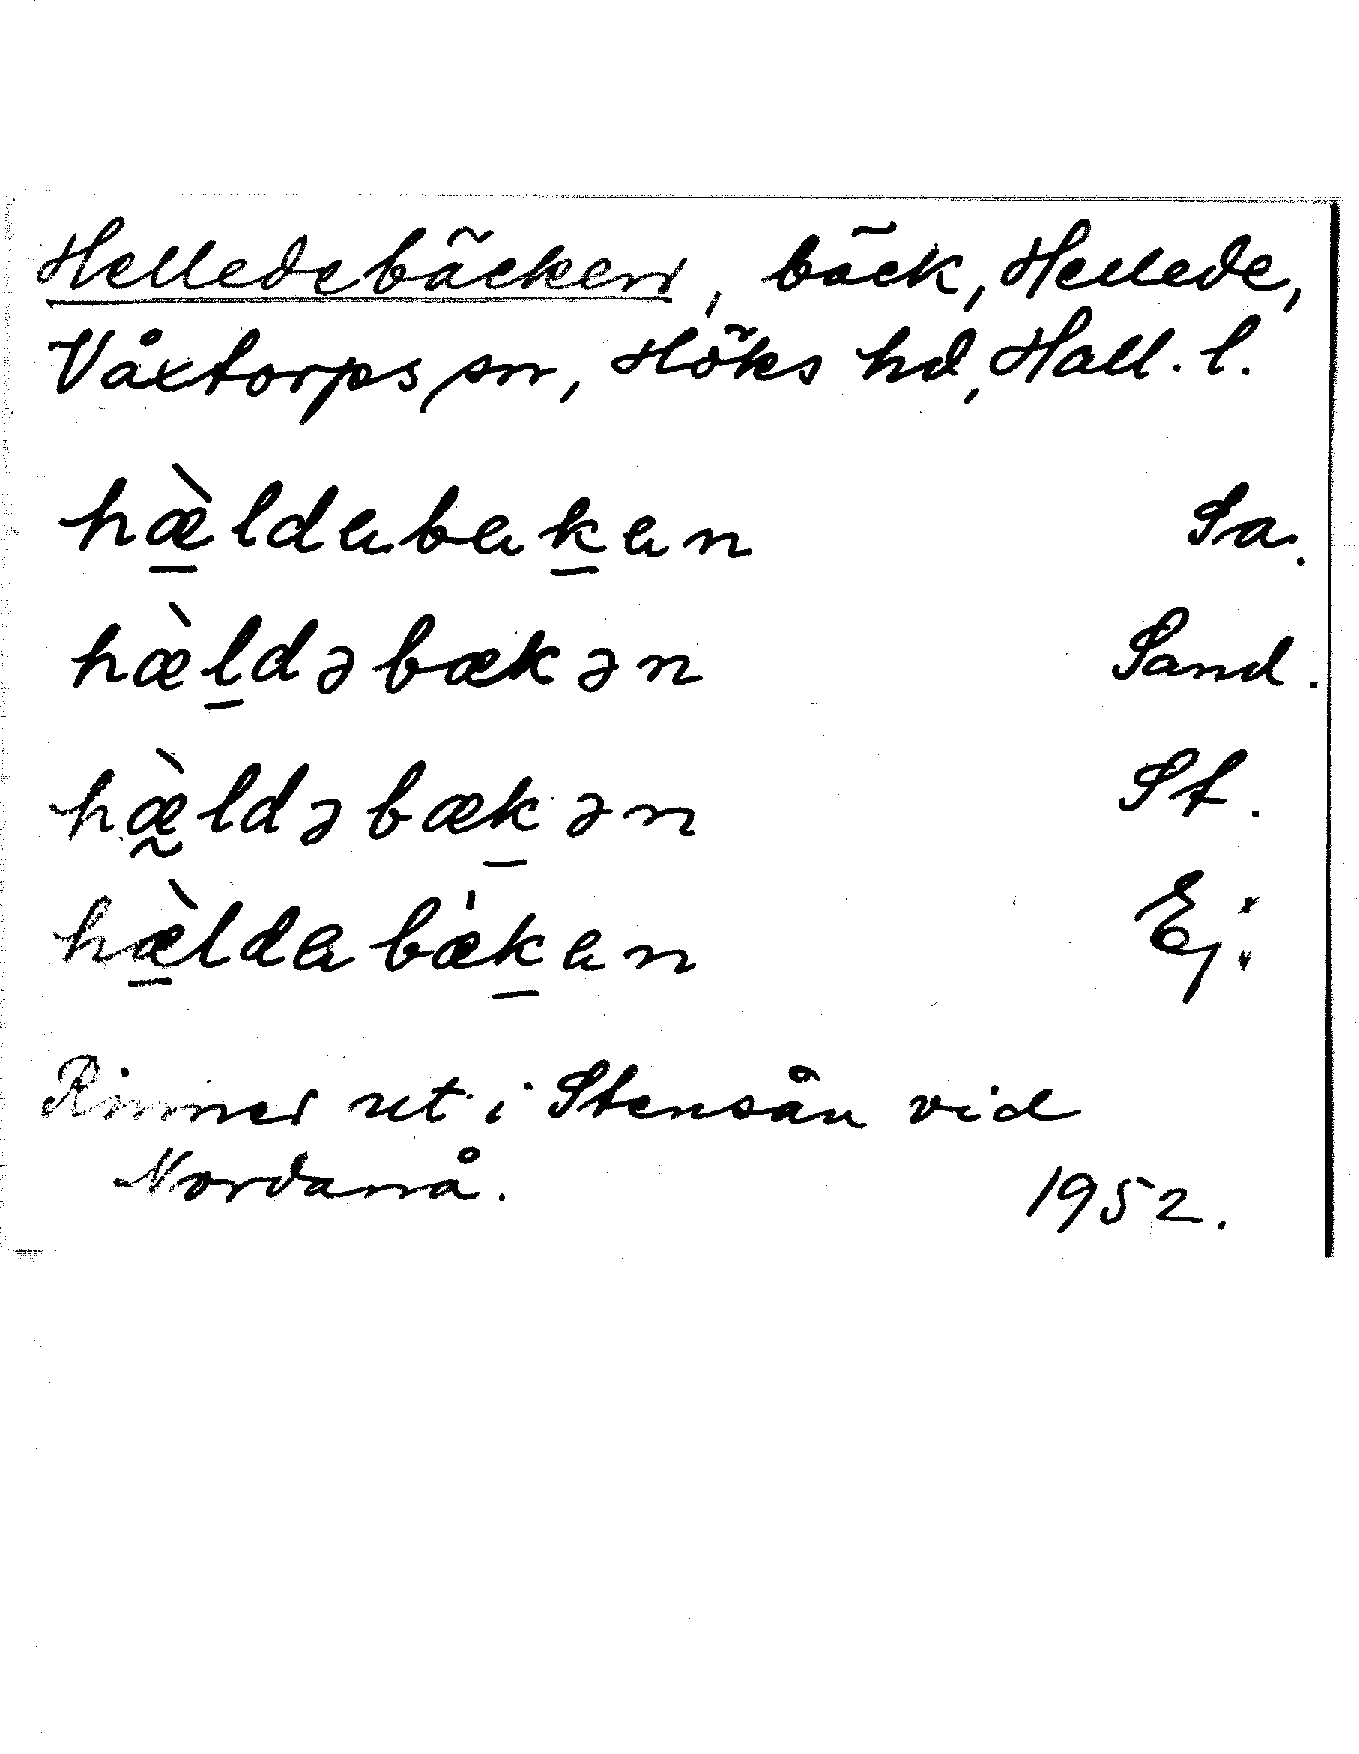 Helledebäcken, bäck, Hellede,
Våxtorps sn, Höks hd, Hall. l.
hæ̠̀ldabak̠an Sa.
hæ̀l̠dəbækən Sand.
hæ̰̀ldəbæk̠ən St.
hæ̠̀ldabæ̍k̠an Ej.
Rinner ut i Stensån vid
Nordanå.
1952.